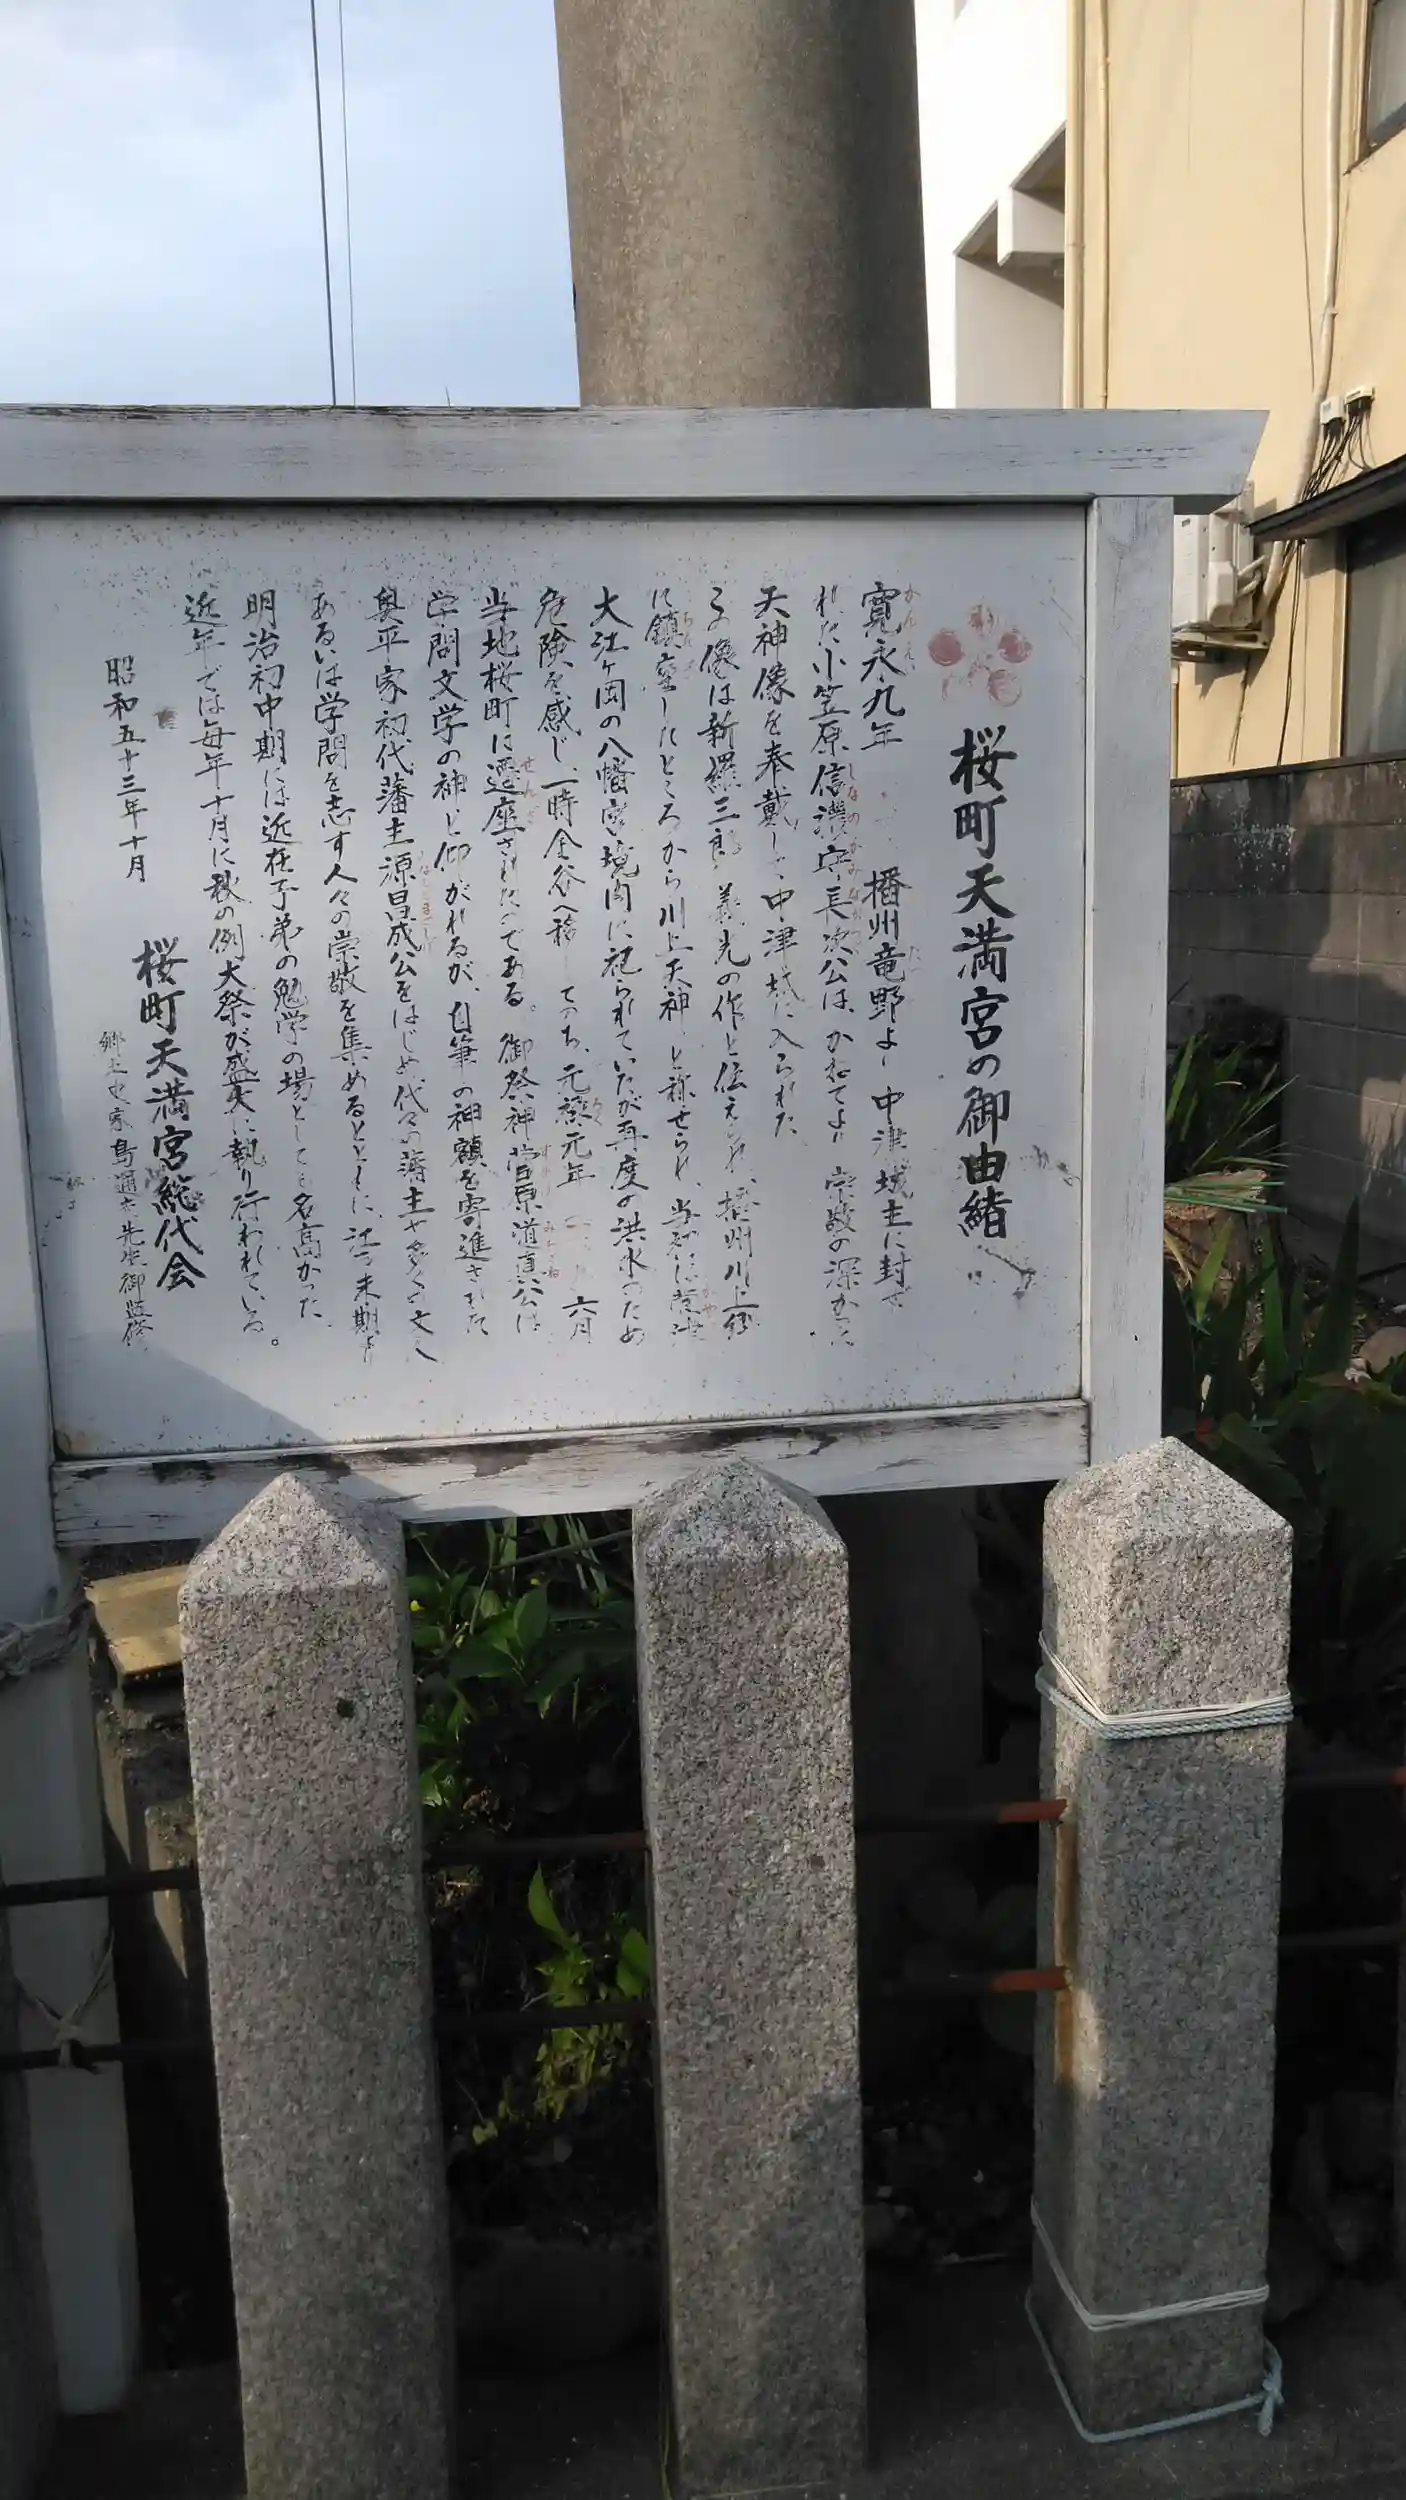 桜町天満宮の御由緒
寛永九年 播州竜野より中津城主に封ぜ
られた小笠原信濃守長次公は、かねてより 崇敬の深かった
天神像を奉戴して中津城に入られた
この像は新羅三郎義光の作と伝えられ、播州川上郷
に鎮座したところから川上天神と称せられ、当初は
大江ヶ岡の八幡宮境内に祀られていたが再度の洪水のため
危険を感じ、一時金谷へ移してのち、元禄元年 六月
当地桜町に遷座されたのである。御祭神菅原道真公は
学問文学の神と仰がれるが、自筆の神額を寄進された
奥平家初代藩主源昌成公をはじめ代々の藩主や多くの文人
あるいは学問を志す人々の崇敬を集めるとともに、江戸末期より
明治初中期には近在子弟の勉学の場としても名高かった
近年では毎年十月に秋の例大祭が盛大に執り行われている。
昭和五十三年十月
桜町天満宮総代会
郷土史家島通夫先生御監修